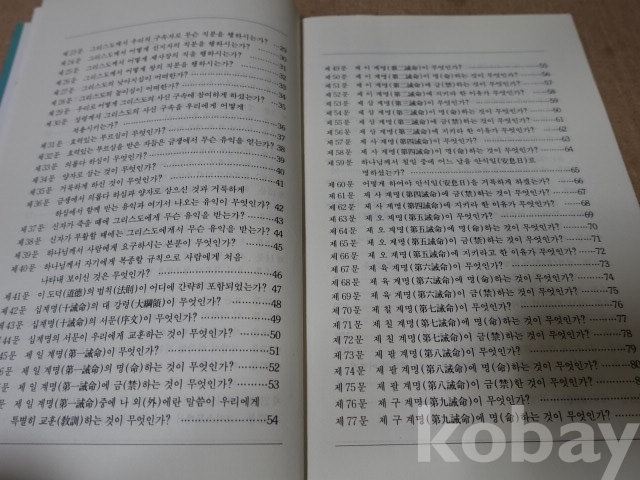 제23문 그리스도께서 우리의 구속자로 무슨 직분을 행하시는가? 29
제24문 그리스도께서 어떻게 선지자의 직분을 행하시는가?
제25문 그리스도께서 어떻게 제사장의 직을 행하시는가?
제26문 그리스도께서 어떻게 왕의 직분을 행하시는가?
제27문 그리스도의 낮아지심이 어떠한가?
제28문 그리스도의 높아지심이 어떠한가?
제29문 우리로 어떻게 그리스도의 사신 구속에 참여하게 하셨는가?
제30문 성령께서 그리스도의 사신 구속을 우리에게 어떻게
적용시키는가?
제31문 효력있는 부르심이 무엇인가?
제32문 효력있는 부르심을 받은 자들은 금생에서 무슨 유익을 얻는가?
제33문 의롭다 하심이 무엇인가?
제34문 양자로 삼는 것이 무엇인가?
제35문 거룩하게 하신 것이 무엇인가? 41
제36문 금생에서 의롭다 하심과 양자로 삼으신 것과 거룩하게
하심에서 함께 받는 유익과 여기서 나오는 유익이 무엇인가? 42
제37문 신자가 죽을 때에 그리스도에게 무슨 유익을 받는가? 43
제38문 신자가 부활할 때에는 그리스도에게서 무슨 유익을 받는가? 44
제39문 하나님께서 사람에게 요구하시는 본분이 무엇인가?
제40문 하나님께서 자기에게 복종할 규칙으로 사람에게 처음
나타내 보이신 것은 무엇인가? 46
제41문 이 도덕(道德)의 법칙(法則)이 어디에 간략히 포함되었는가? 47
제42문 십계명(十誡命)의 대 강령(大綱領)이 무엇인가? 48
제43문 십계명(十誡命)의 서문(序文)이 무엇인가? 49
제44문 십계명의 서문이 우리에게 교훈하는 것이 무엇인가? 50
45문 제 일 계명(第一誡命)이 무엇인가? 51
문 제 일 계명(第一誡命)의 명(命)하는 것이 무엇인가? 52
문 제 일 계명(第一誡命)에 금(禁)하는 것이 무엇인가? 53
문 제 일 계명(第一誡命)중에 나 외(外)에란 말씀이 우리에게
특별히 교훈(敎訓)하는 것이 무엇인가? 54
제49문 제 이 계명(第二誡命)이 무엇인가? 55
제50문 제 이 계명(第二誡命)에 명(命)하는 것이 무엇인가?
제51문 제 이 계명(第二誡命)에 금(禁)하는 것이 무엇인가?
제52문 제 이 계명(第二誡命)에 지키라 한 이유가 무엇인가? 58
제53문 제 삼 계명(第三誡命)이 무엇인가? 59
제54문 제 삼 계명(第三誡命)에 명(命)하는 것이 무엇인가? 60
제55문 제 삼 계명(第三誡命)에 금(禁)하는 것이 무엇인가?
제56문 제 삼 계명(第三誡命)에 지키라 한 이유가 무엇인가?
제57문 제 사 계명(第四誡命)이 무엇인가?
제58문 제 사 계명(第四誡命)에 명(命)하는 것이 무엇인가? 64
제59문 하나님께서 칠일 중에 어느 날을 안식일(安息日)로
명하셨는가?
제60문 어떻게 하여야 안식일(安息日)을 거룩하게 하겠는가? 66
제61문 제 사 계명(第四誡命)에 금(禁)하는 것이 무엇인가? 67
제62문 제 사 계명(第四誡命)에 지키라 한 이유가 무엇인가? 68
제63문 제 오 계명(第五誡命)이 무엇인가? 69
제64문 제 오 계명(第五誡命)에 명(命)하는 것이 무엇인가? 70
제65문 제 오 계명(第五誡命)에 금(禁)하는 것이 무엇인가? 71
제66문 제 오 계명(第五誡命)에 지키라고 한 이유가 무엇인가? 72
제67문 제 육 계명(第六誡命)이 무엇인가?
제68문 제 육 계명(第六誡命)에 명(命)하는 것이 무엇인가?
제69문 제 육 계명(第六誡命)이 금(禁)하는 것이 무엇인가? 75
제70문 제 칠 계명(第七誡命)이 무엇인가?
제71문 제 칠 계명(第七誡命)에 명(命)하는 것이 무엇인가?
제72문 제 칠 계명(第七誡命)이 금(禁)하는 것이 무엇인가?
제73문 제 팔 계명(第八誡命)이 무엇인가?
제74문 제 팔 계명(第八誡命)에 명(命)하는 것이 무엇인가? 80
제75문 제 팔 계명(第八誡命)이 금(禁)한 것이 무엇인가?
제76문 제 구 계명(第九誡命)이 무엇인가?
제77문 제 구 계명(第九誡命)에 명(命)하는 것이 무엇인가?
kobay